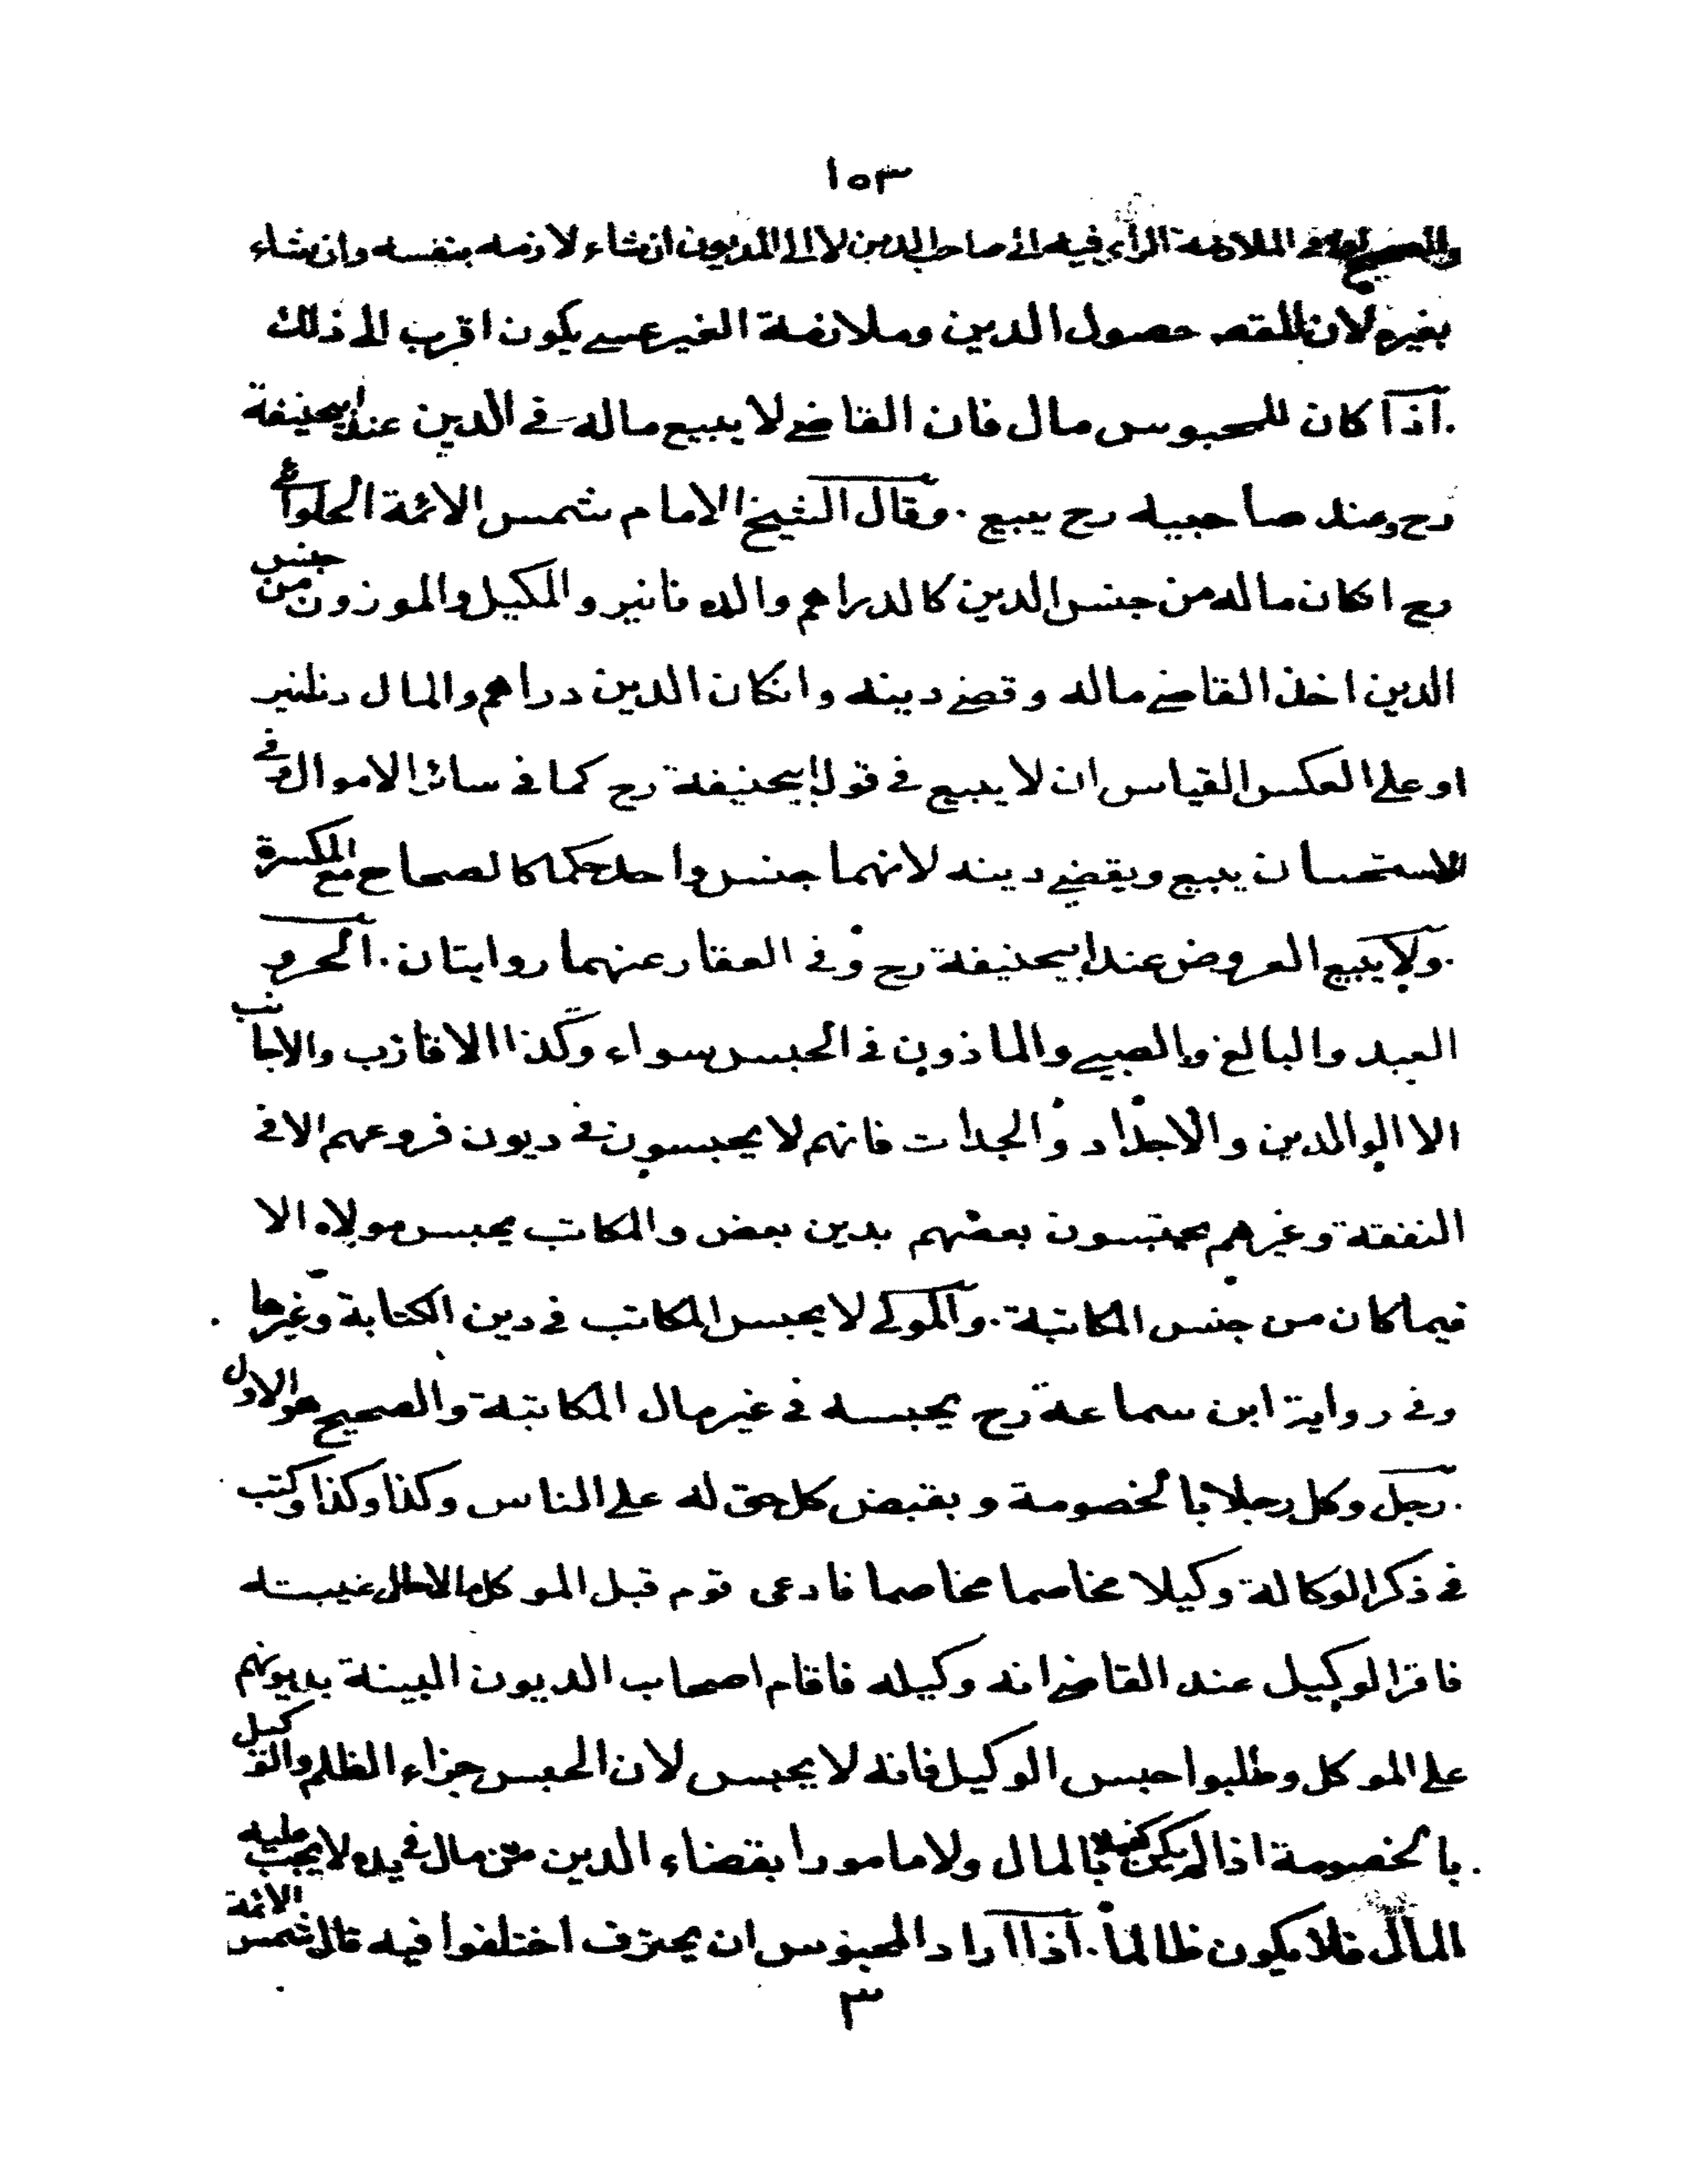 ١٥٣
والصحيح انه في الملازمة الرأي فيه الى صاحب الدين لا الى المديون ان شاء لازمه بنفسه وان شاء
بغيره لان المقصد حصول الدين وملازمة الغير عسى يكون اقرب الى ذلك
. اذا كان للمحبوس مال فان القاضي لا يبيع ماله في الدين عند ابيحنيفة
رح وعند صاحبيه رح يبيع . وقال الشيخ الامام شمس الائمة الحلوائي
رح انكان ماله من جنس الدين كالدراهم والدنانير والمكيل والموزون من جنس
الدين اخذ القاضي ماله وقضى دينه وانكان الدين دراهم والمال دنانير
او على العكس القياس ان لا يبيع في قول ابيحنيفة رح كما في سائر الاموال وفي
الاستحسان يبيع ويقضي دينه لانهما جنس واحد حكما كالصحاح مع المكسرة
. ولا يبيع العروض عند ابيحنيفة رح وفي العقار عنهما روايتان . الحر و
العبد والبالغ والصبي والماذون في الحبس سواء وكذا الاقارب والاجانب
الا الوالدين والاجداد والجدات فانهم لا يحبسون في ديون فروعهم الا في
النفقة وغيرهم يحبسون بعضهم بدين بعض والمكاتب يحبس مولاه الا
فيما كان من جنس المكاتبة . والمولى لا يحبس المكاتب في دين الكتابة وغيرها
وفي رواية ابن سماعة رح يحبسه في غير مال المكاتبة والصحيح هو الاول
. رجل وكل رجلا بالخصومة وبقبض كل حق له على الناس وكذا وكذا وكتب
في ذكر الوكالة وكيلا مخاصما مخاصما فادعى قوم قبل الموكل مالا حال غيبته
فاقر الوكيل عند القاضي انه وكيله فاقام اصحاب الديون البينة بديونهم
على الموكل وطلبوا حبس الوكيل فانه لا يحبس لان الحبس جزاء الظلم والتوكيل
بالخصومة اذا لم يكن كفيلا بالمال ولا مامورا بقضاء الدين من مال في يده لا يجب عليه
المال فلا يكون ظالما . اذا اراد المحبوس ان يحترف اختلفوا فيه قال شمس الائمة
٣